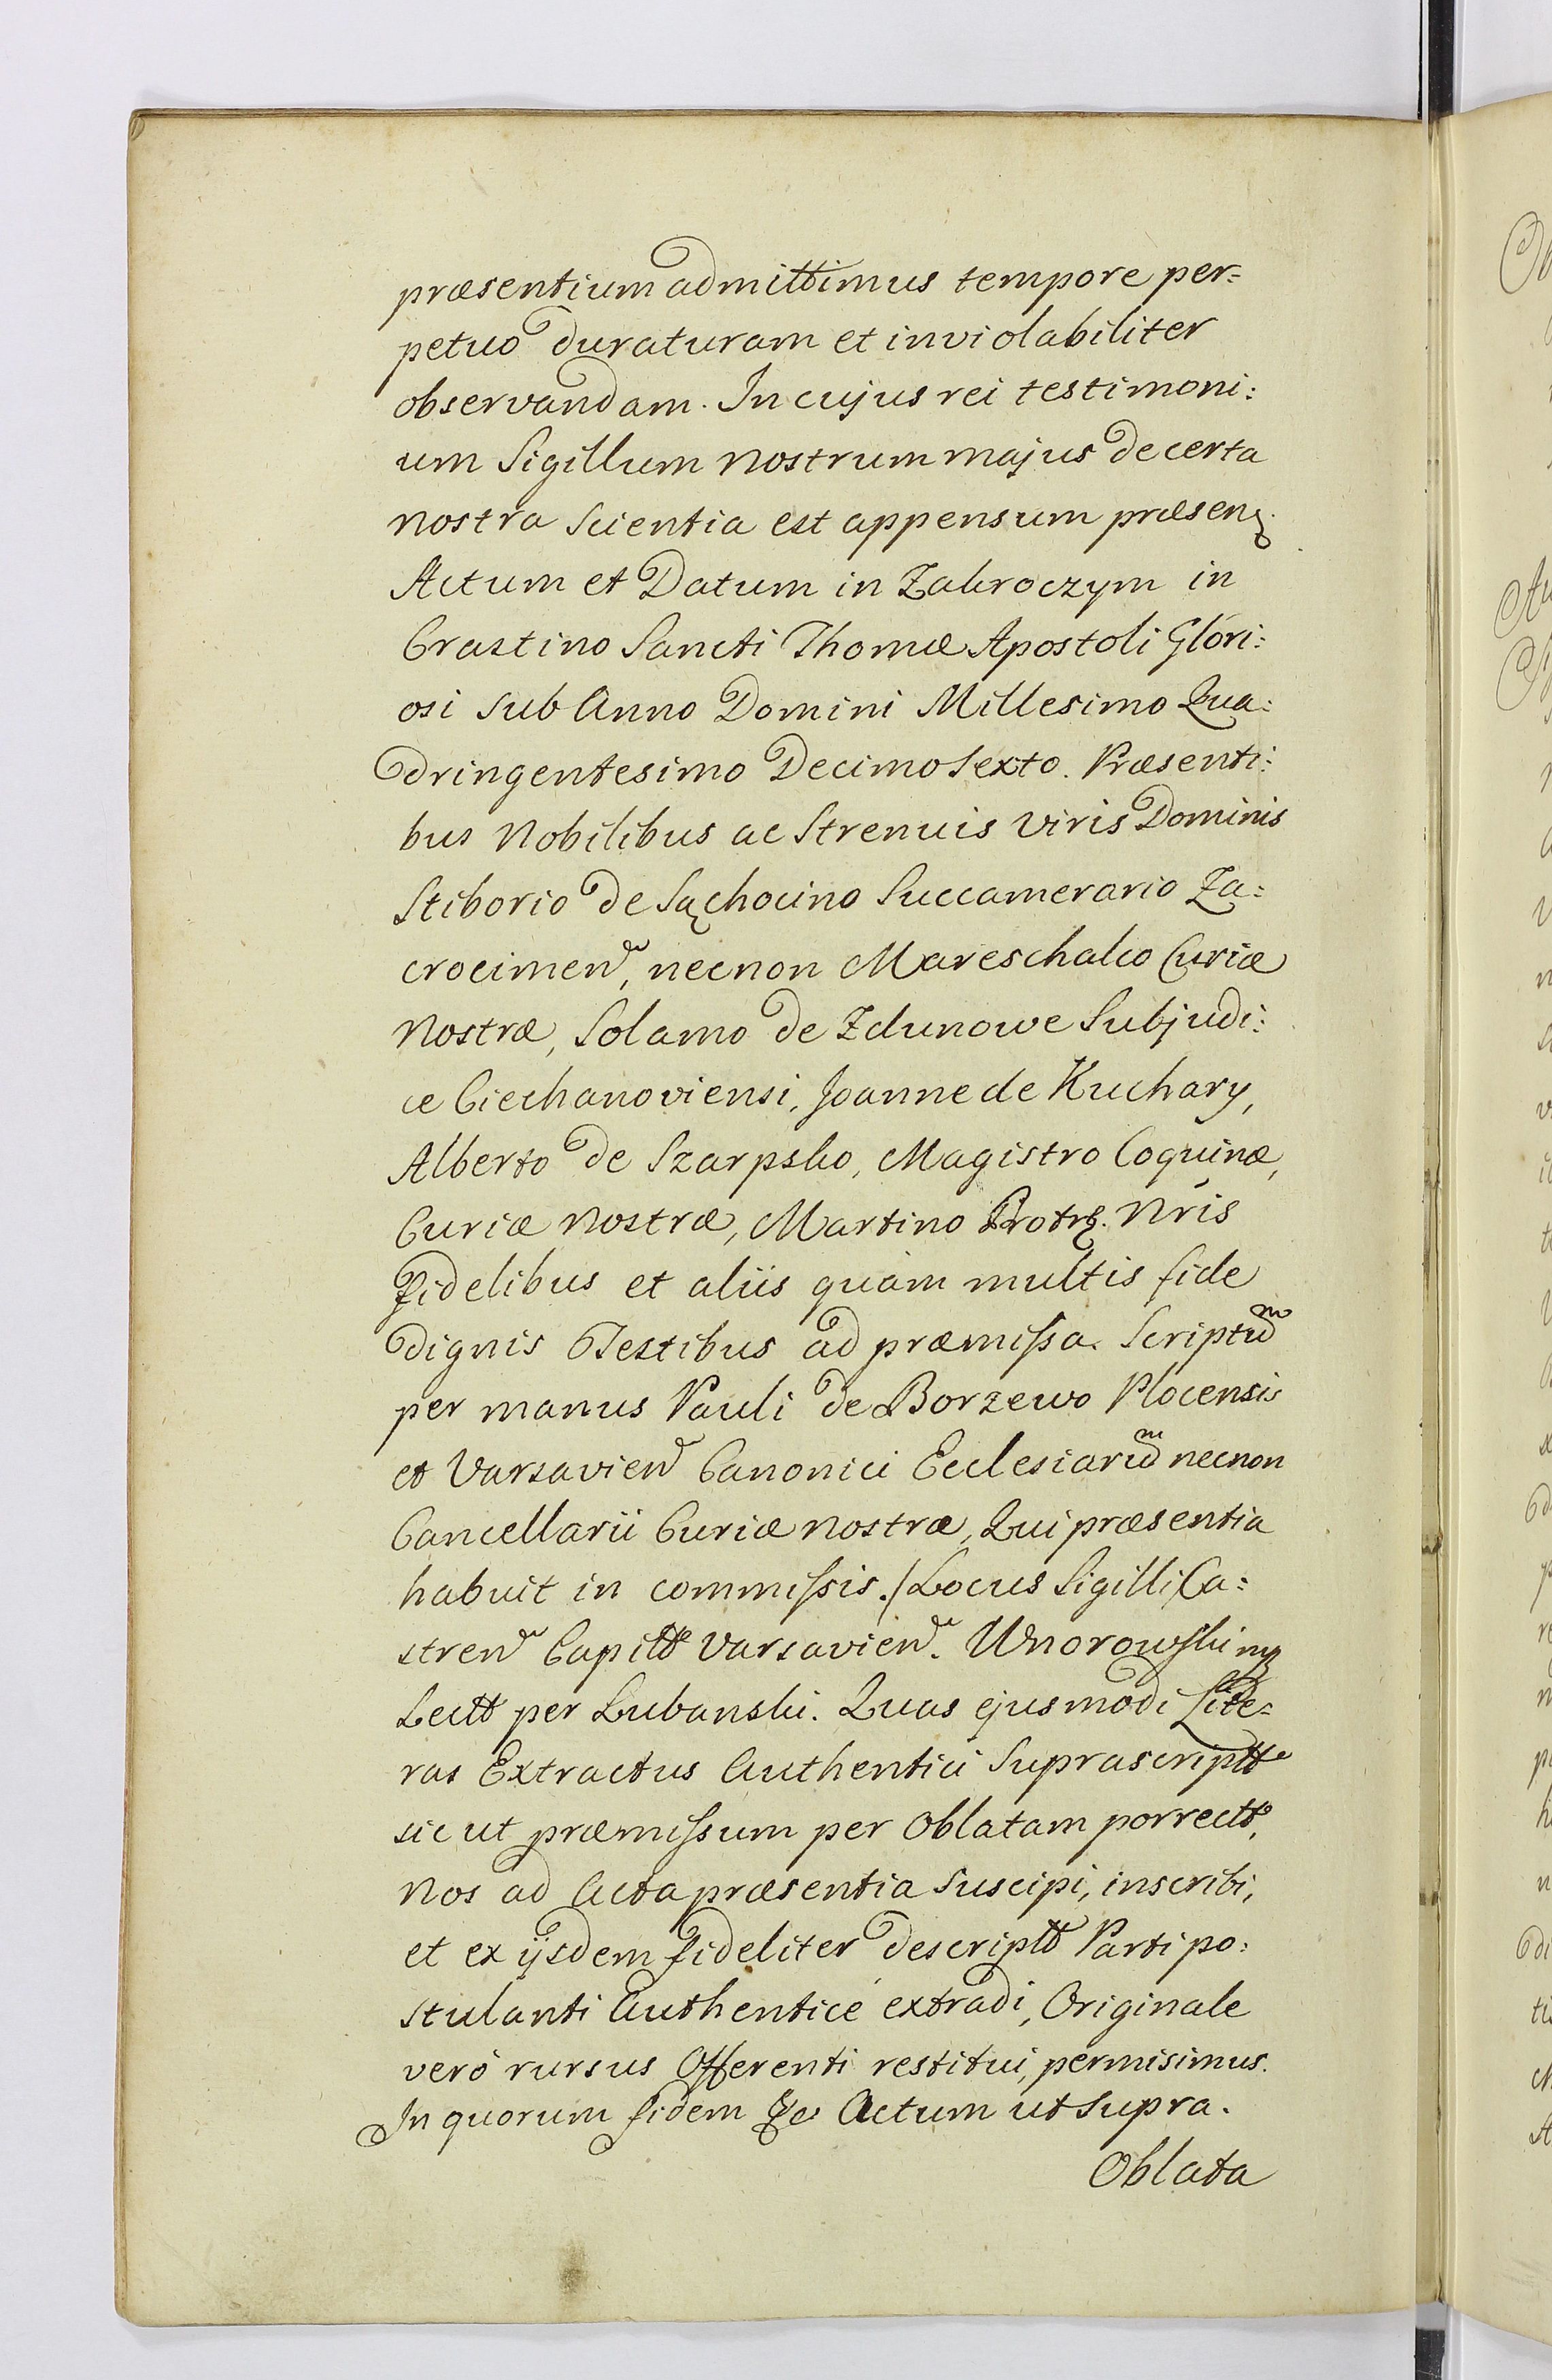 præsentium admittimus tempore per=
petuo duraturam et inviolabiliter
observandam. In cujus rei testimoni:
um Sigillum nostrum majus de certa
nostra scientia est appensum præsen.
Actum et Datum in Zakroczym in
Crastino Sancti Thomæ Apostoli Glóri:
osi sub Anno Domini Millesimo Qua:
dringentesimo Decimo Sexto. Præsenti:
bus Nobilibus ac Strenuis viris Dominis
Stiborio de Sąchocino Succamerario Za:
crocimen, necnon Mareschalco Curiæ
nostræ, Solamo de Zdunowe Subjudi:
ce Ciechanoviensi, Joanne de Kuchary,
Alberto de Szarpsko, Magistro Coquinæ,
Curiæ nostræ, Martino nris
fidelibus et aliis quàm multis fide
dignis Testibus ad præmissa. Scriptum
per manus Pauli de Borzewo Plocensis
et Varsavien Canonici Ecclesiarum necnon
Cancellarii Curiæ nostræ, Qui præsentia
habuit in commissis. /Locus Sigilli/ Ca:
stren Capitt Varsavien. Wnorowski mp
Lectt per Lubanski. Quas ejusmodi Lite=
ras Extractus Authentici Suprascriptt
sic ut præmissum per Oblatam porrectt,
nos ad Acta præsentia suscipi, inscribi,
et ex ijsdem fideliter descriptt Parti po:
stulanti Authenticé extradi, Originale
verò rursus Offerenti restitui, permisimus.
In quorum fidem &c Actum ut supra.
Oblata